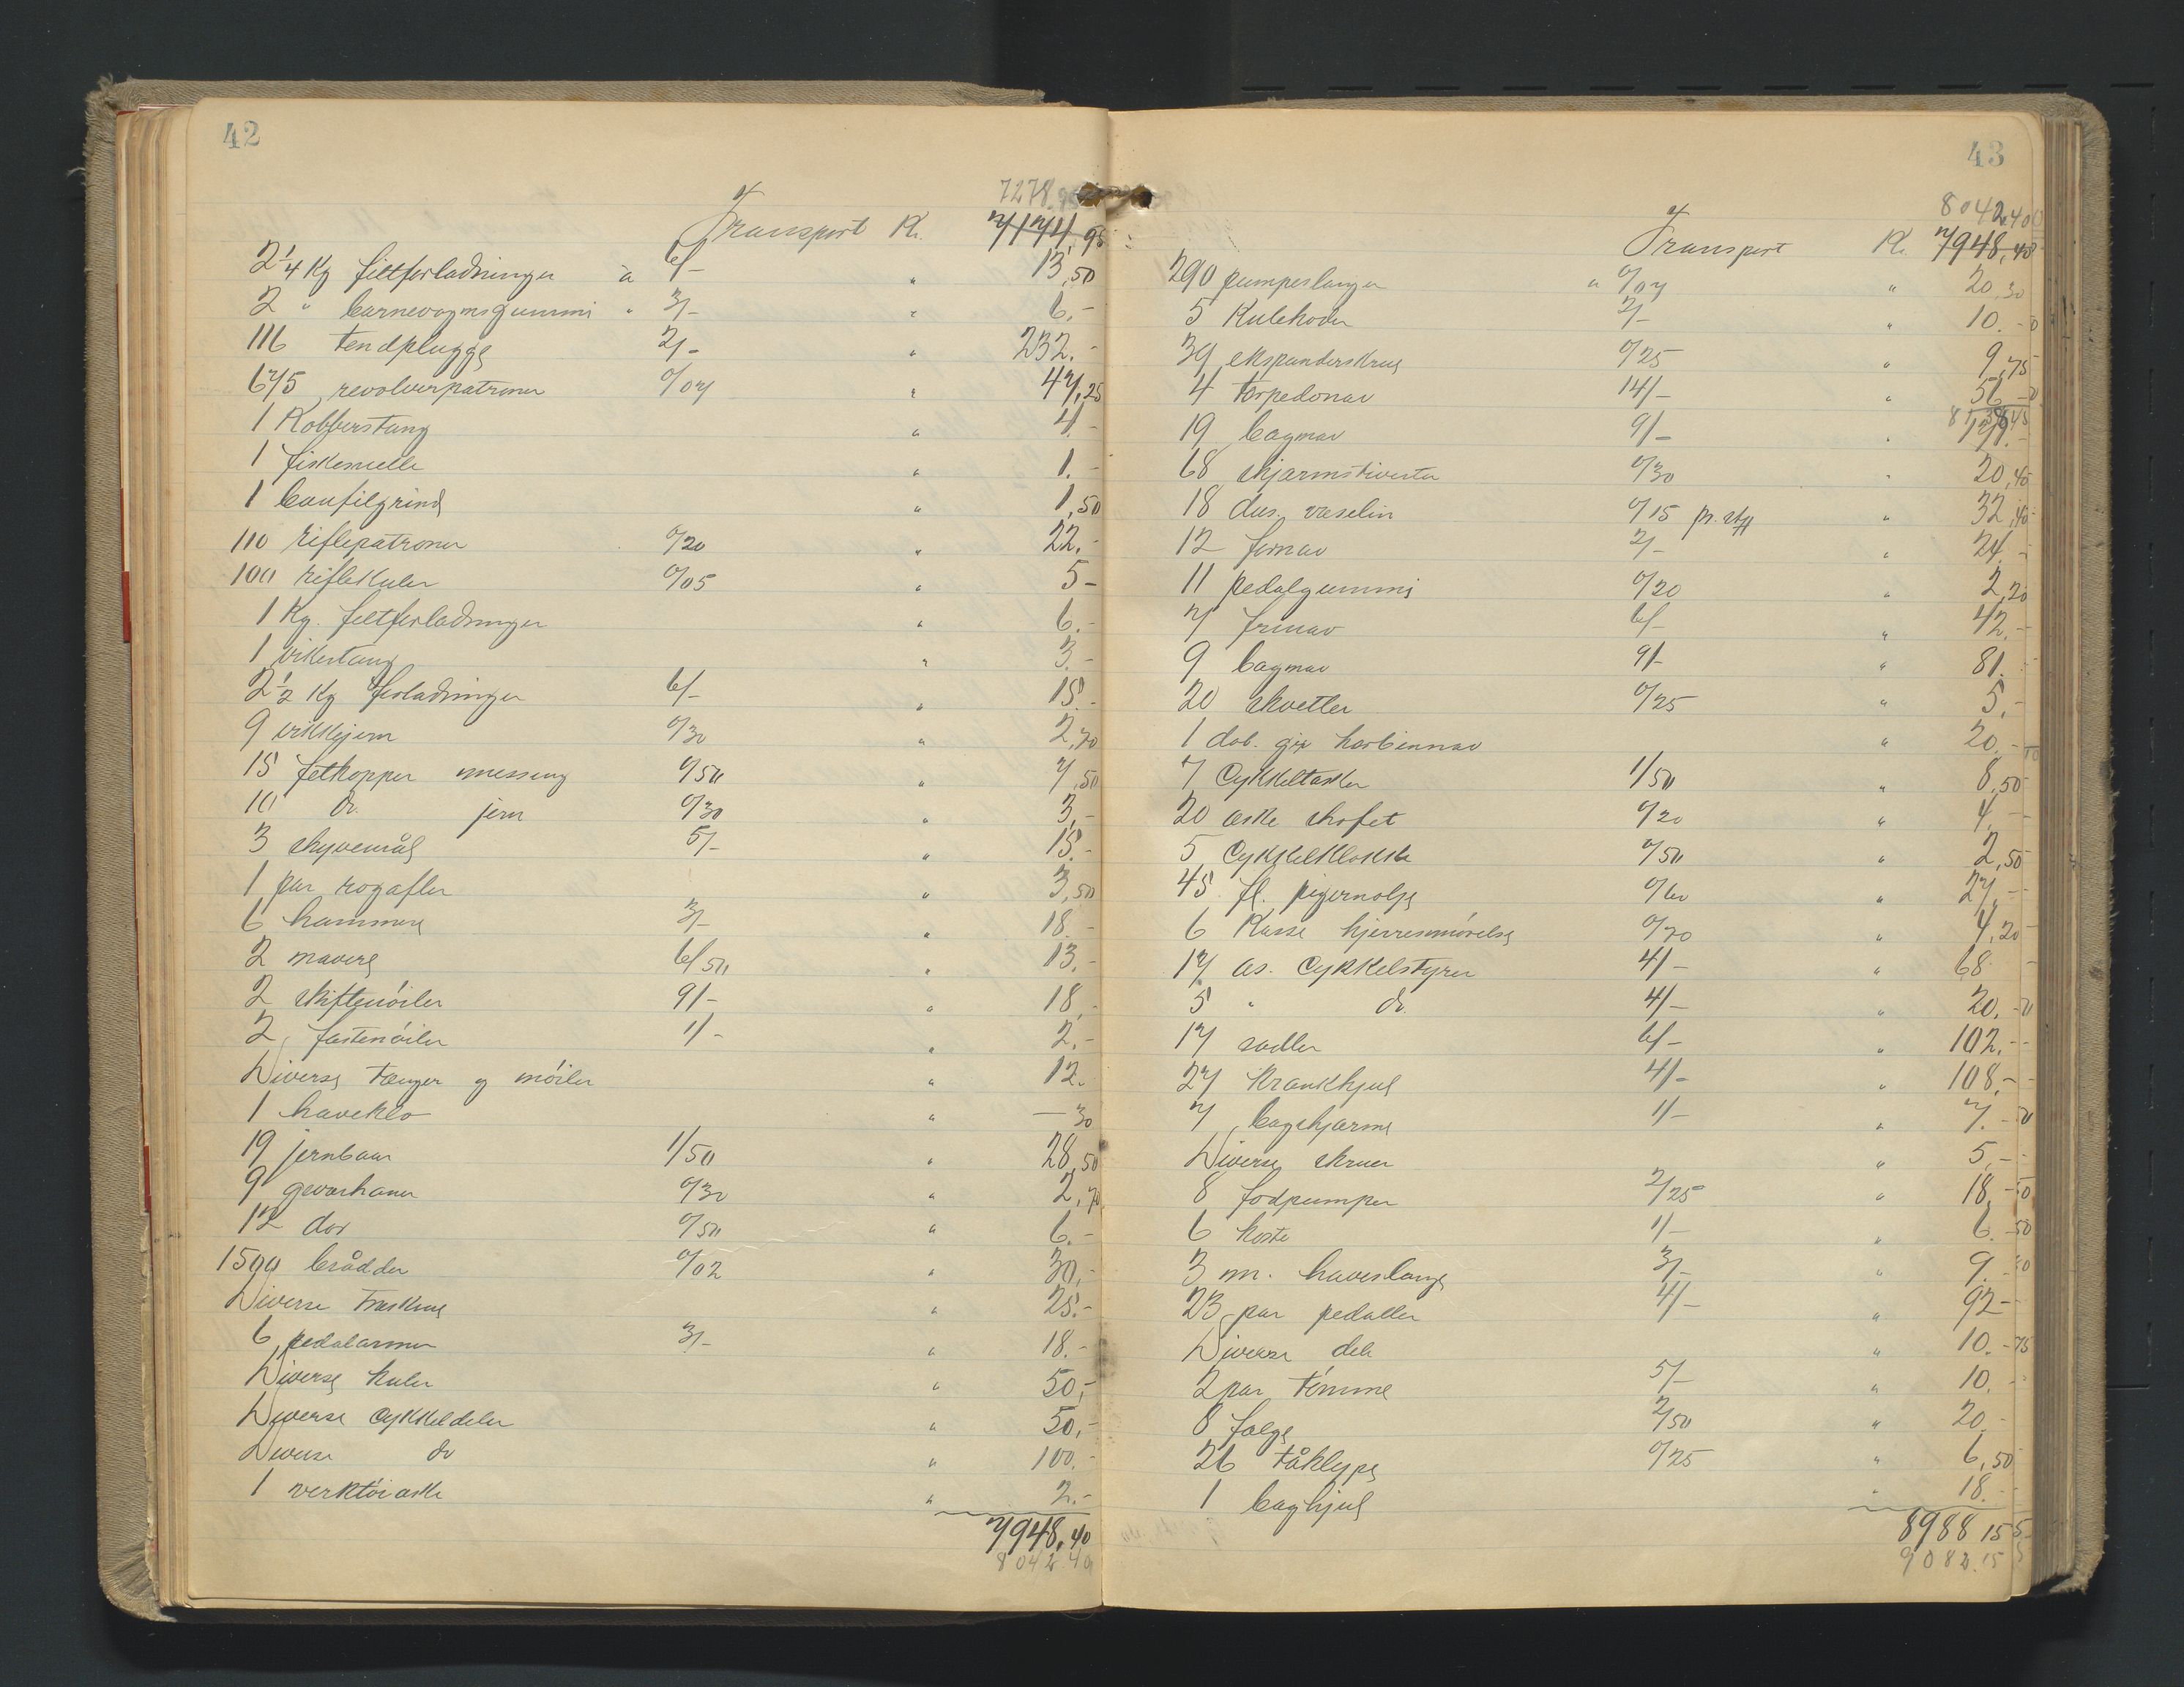 42
7278.95
Transport Kr. 7174,95
2 1/4 Kg filtforladninger à 6/- " 13,50
2 " barnevognsgummi " 3/- " 6.-
116 tendplugge 2/- " 232.-
675 revolverpatroner 0/07 " 47,25
1 Kobberstang " 4.-
1 fiskesnelle " 1.-
1 baufilgrind " 1,50
110 riflepatroner 0/20 " 22.-
100 riflekuler 0/05 " 5-
1 Kg. filtforladninger " 6.-
1 vikertang " 3.-
2 1/2 Kg forladninger 6/- " 15.-
9 vikkejern 0/30 " 2,70
15 fetkopper messing 0/50 " 7,50
10 do. jern 0/30 " 3,-
3 skyvemål 5/- " 15.-
1 par " 3,50
6 hammere 3/- " 18.-
2 6/50 " 13.-
2 skiftenöiler 9/- " 18.-
2 fastenöiler 1/- " 2.-
Diverse tænger og nöiler " 12.
1 haveklo " — 30
19 jernbaur 1/50 " 28,50
9 geværhaner 0/30 " 2,70
12 dor 0/50 " 6.-
1500 brådder 0/02 " 30,-
Diverse træskrue " 25.-
6 pedalarmer 3/- " 18.-
Diverse kuler " 50,-
Diverse cykkeldeler " 50,-
Diverse do " 100.-
1 verktöiaske " 2.-
7948,40
8042.40
43
8042,40
Transport Kr. 7948,40
290 pumpeslanger " 0/07 " 20,30
5 Kulehoder 2/- " 10.-
39 ekspanderskrue 0/25 " 9,75
4 torpedonav 14/- " 56.-
19 bagnav 9/- " 171.-
68 skjærmstivere 0/30 " 20,40
18 dus. vaselin 0/15 pr. stk " 32,40
12 fornav 2/- " 24.-
11 pedalgummi 0/20 " 2,20
7 frinav 6/- " 42.-
9 bagnav 9/- " 81.-
20 skvetler 0/25 " 5,-
1 dob. gir " 20.-
7 Cykkeltasker 1/50 " 8,50
20 æske 0/20 " 4,-
5 Cykkelklokke 0/50 " 2,50
45 fl. 0/60 " 27.-
6 Kasse kjerresmörelse 0/70 " 4,20
17 as. Cykkelstyrer 4/- " 68.-
5 " do. 4/- " 20.-
17 sadler 6/- " 102.-
27 Krankhjul 4/- " 108.-
7 bagskjærme 1/- " 7.-
Diverse skruer " 5.-
8 fodpumper 2/25 " 18,-
6 koste 1/- " 6.-
3 m. haveslange 3/- " 9.-
23 par pedaller 4/- " 92-
Diverse dele " 10.-
2 par tömme 5/- " 10.-
8 fælge 2/50 " 20.-
26 tåklype 0/25 " 6,50
1 baghjul " 18.-
8988 15
9082.15